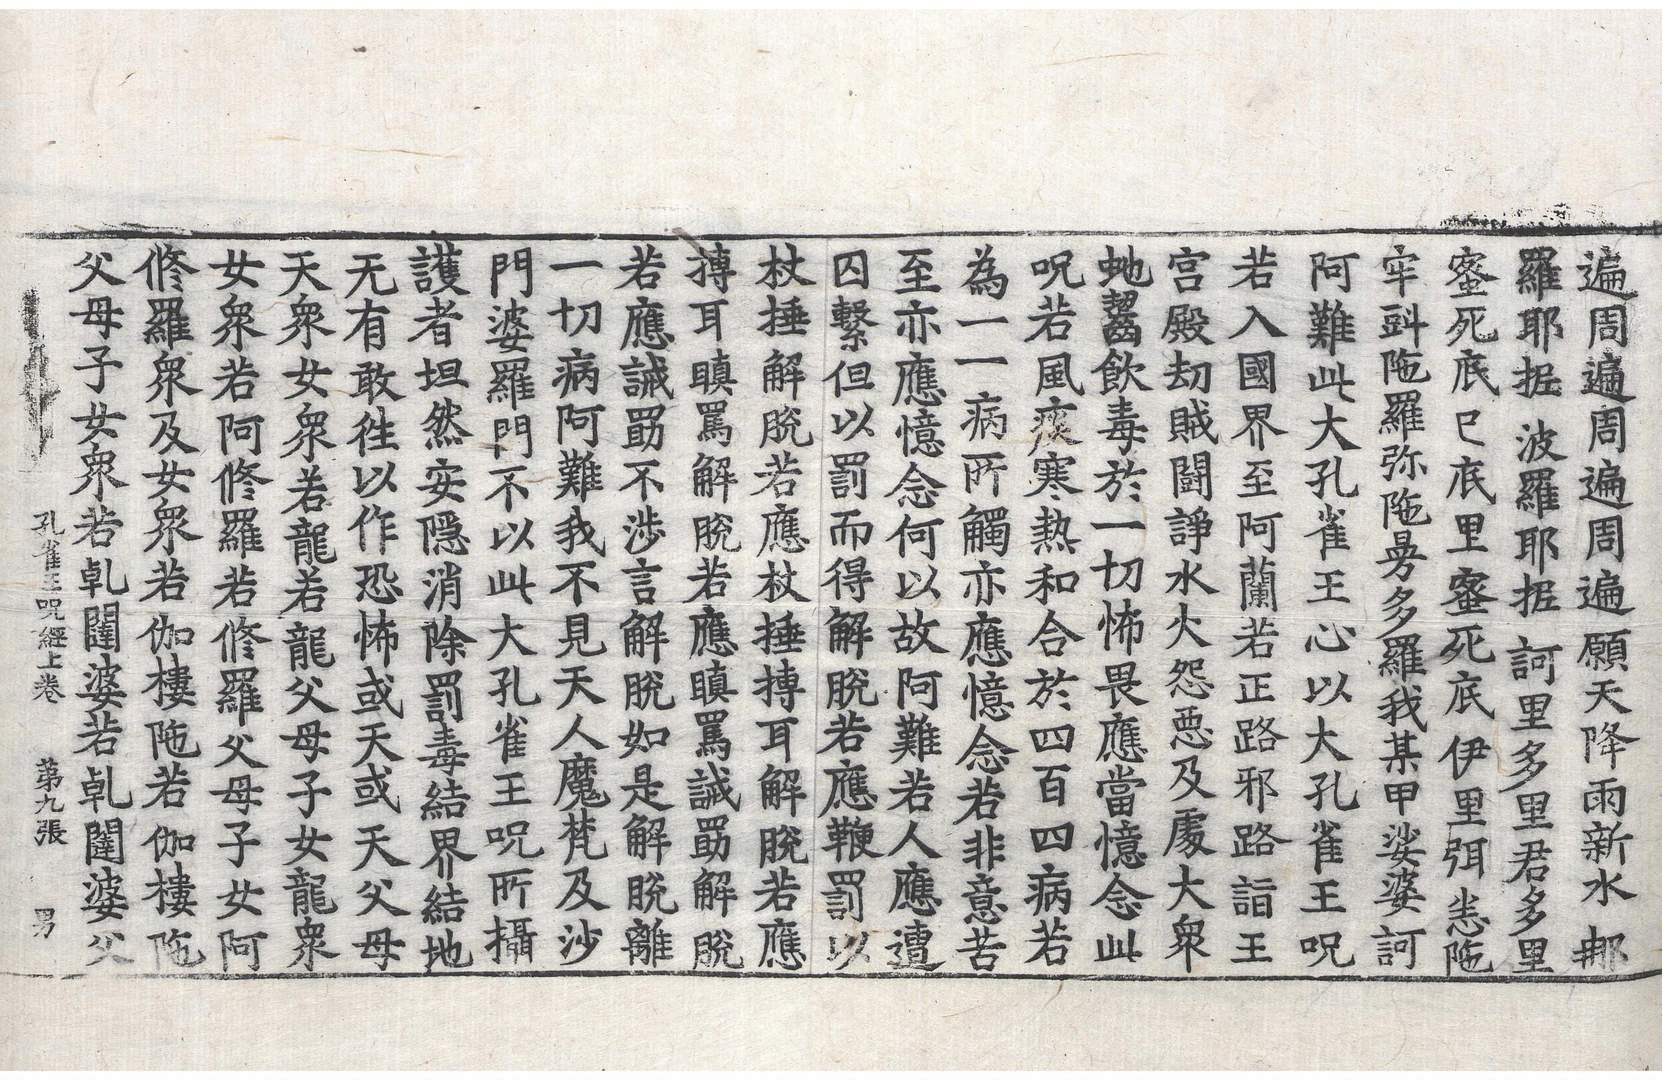 遍周遍周遍周遍願天降雨新水那
羅耶抳波羅耶抳訶里多里君多里
蜜死底巳底里蜜死底伊里弭恙陁
牢㪷陁羅弥陁曼多羅我某甲娑婆訶
阿難此大孔雀王心以大孔雀王呪
若入國界至阿蘭若正路邪路詣王
宮殿劫賊鬪諍水火怨惡及處大衆
虵齧飲毒於一切怖畏應當憶念此
呪若風痰寒熱和合於四百四病若
為一一病所觸亦應憶念若非意苦
至亦應憶念何以故阿難若人應遭
囚繫但以罰而得解脫若應鞭罰以
杖捶解脫若應杖捶搏耳解脫若應
搏耳瞋罵解脫若應瞋罵誡勗解脫
若應誡勗不涉言解脫如是解脫離
一切病阿難我不見天人魔梵及沙
門婆羅門不以此大孔雀王呪所攝
護者坦然安隱消除罰毒結界結地
无有敢徃以作恐怖或天或天父母
天衆女衆若龍若龍父母子女龍衆
女衆若阿修羅若修羅父母子女阿
修羅衆及女衆若伽樓陁若伽樓陁
父母子女衆若乹闥婆若乹闥婆父
孔雀王呪經上卷 第九張 男